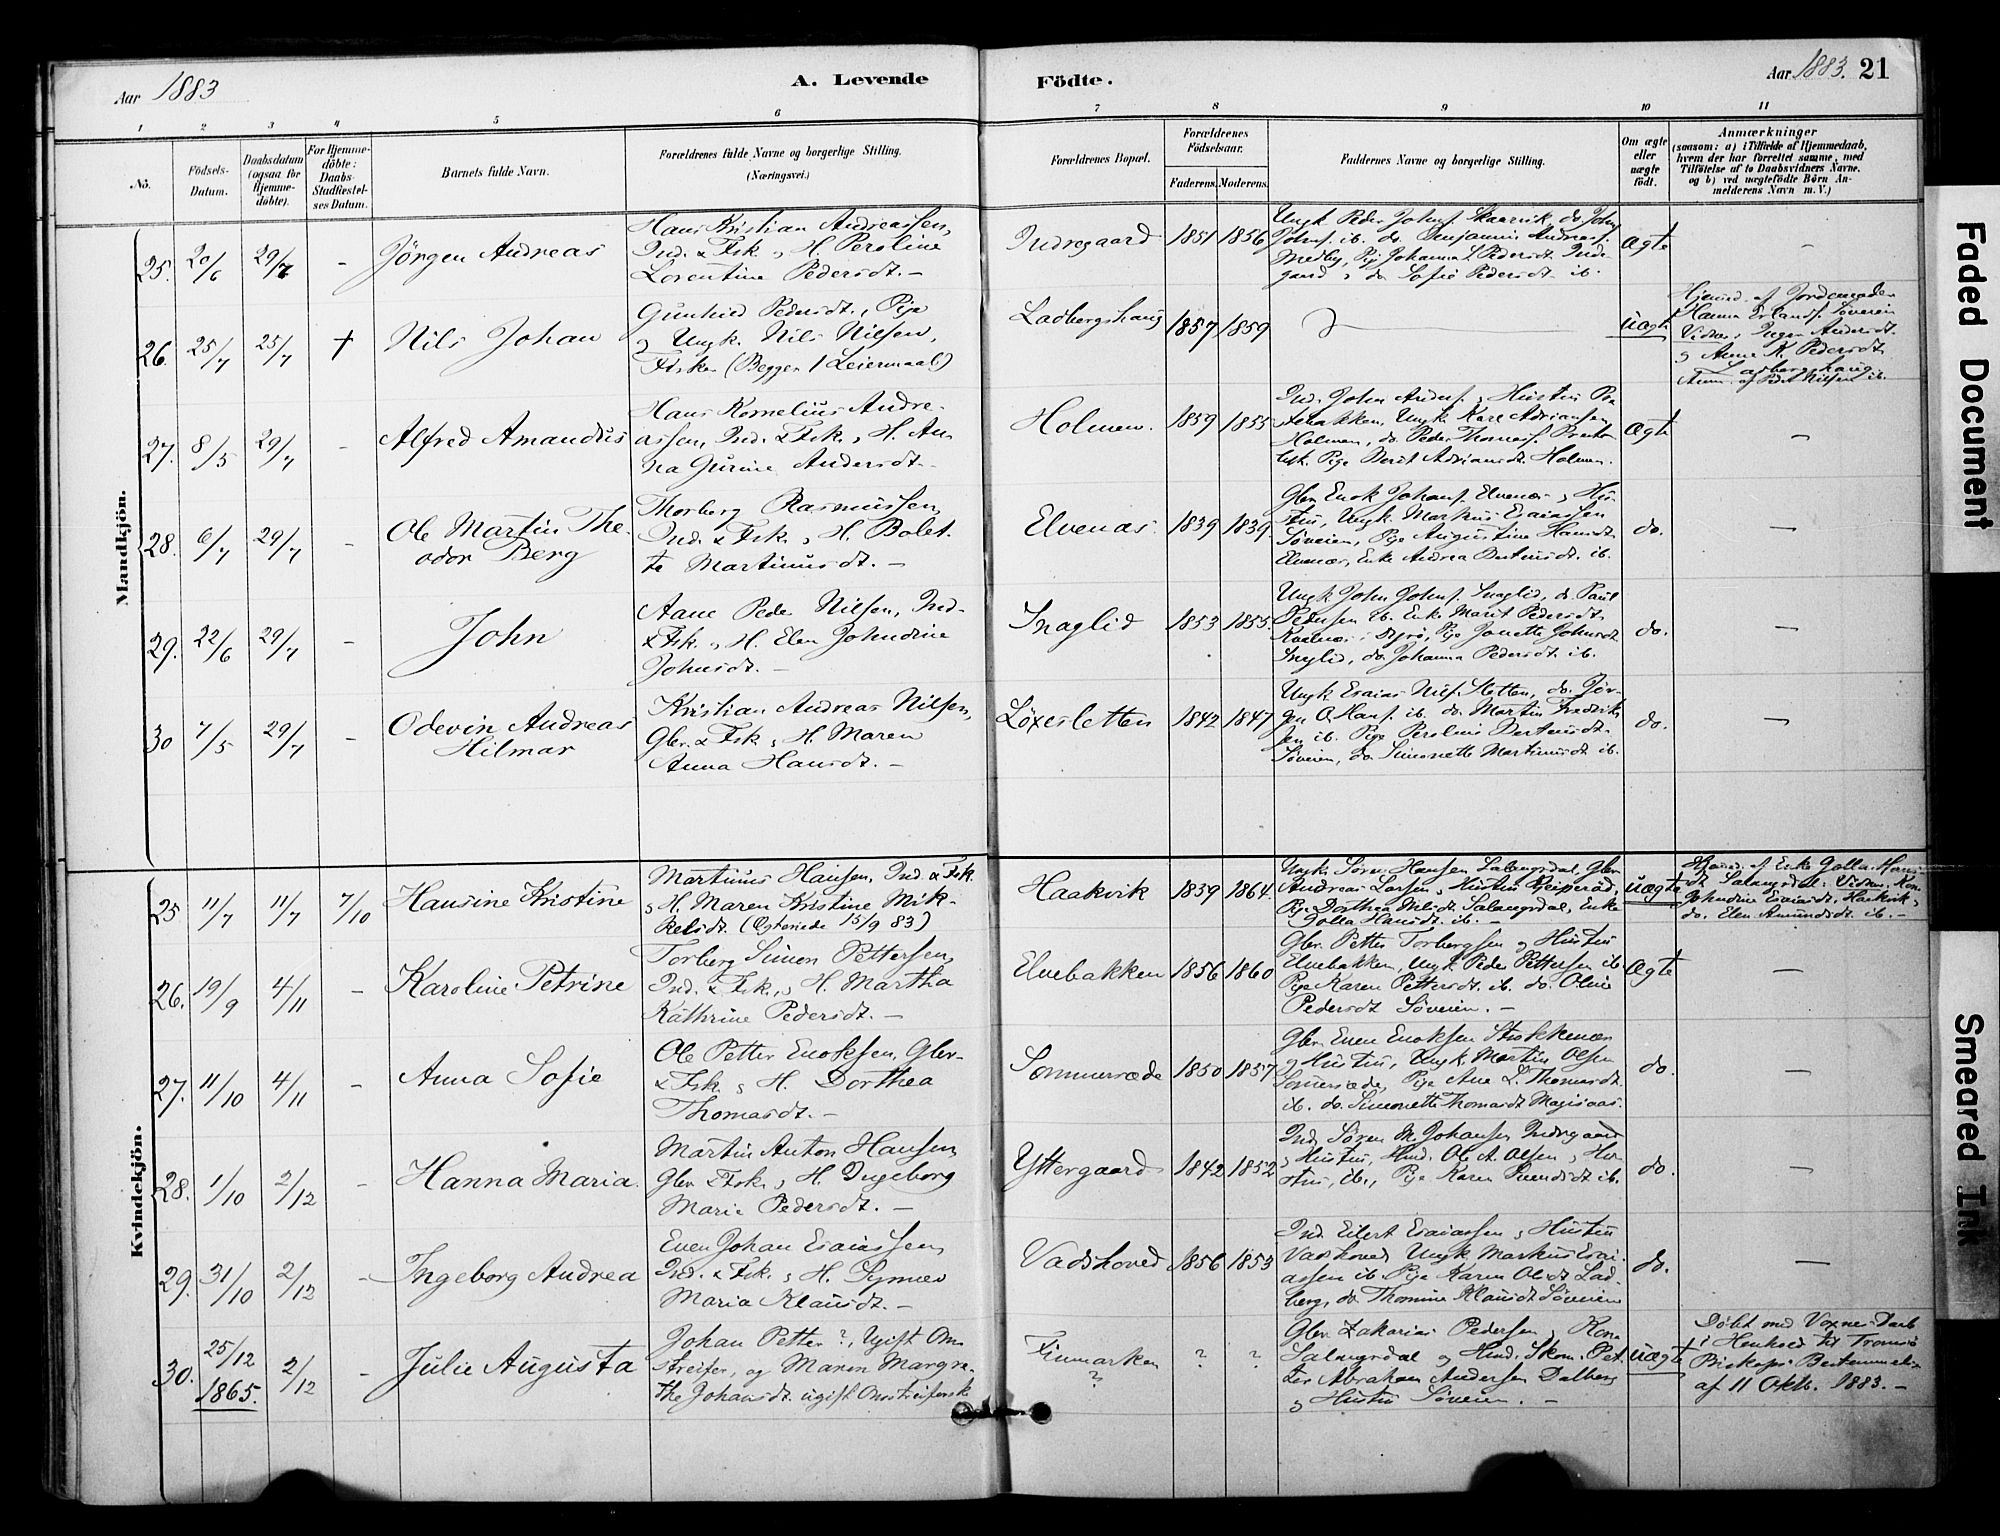 Aar 1883
A. Levende
Födte.
Aar 1883. 21
1 2 3 4 5 6 7 8 9 10 11
No.
Födsels-Datum.
Daabsdatum (ogsaa for Hjemmedöbte).
For Hjemmedöbte: Daabs-Stadfæstelses Datum.
Barnets fulde Navn.
Forældrenes fulde Navne og borgerlige Stilling.
(Næringsvei.)
Forældrenes Bopæl.
Forældrenes Födselsaar.
Faderens. Moderens.
Faddernes Navne og borgerlige Stilling.
Om ægte eller uægte födt.
Anmærkninger
(saasom: a) i Tilfælde af Hjemmedaab, hvem der har forrettet samme, med Tilföielse af to Daabsvidners Navne, og b) ved uægtefödte Börn Anmelderens Navn m. V.)
Mandkjön.
25. 20/6 29/7 - Jörgen Andreas
Hans Kristian Andreassen,
Ind. & Fisk. og H. Peroline
Lorentine Pedersdt. -
Indregaard 1851 1856
Ungk. Peder Johns. Skaarvik, do. John
Johns. ib. do. Benjamin Andreas.
Medby, Pige Johanna L Pedersdt. Indre-
gaard, do Sofie Pedersdt. ib.
Ægte -
26. 25/7 25/7 † Nils Johan
Gunhild Pedersdt., Pige
og Ungk. Nils Nilsen,
Fisker (Begges 1 Leiermaal)
Ladbergshaug 1857 1859
uægte
Hjemd. af Jordemoder
Hanna Erlands. Søveien
Vidner: Inger Andersdt.
og Anne K. Pedersdt.
Ladbergshaug
Anm. af Pet Nilsen ib.
27. 8/5 29/7 - Alfred Amandus
Hans Kornelius Andre-
assen, Ind. & Fisk. og H. An-
na Gurine Andersdt. -
Holmen. 1859 1855
Ind. John Anders. og Hustru
bakken, Ungk. Karl Adriansen
Holmen, do. Peder Thomas.
Pige Berit Adriansdt. Holmen.
Ægte -
28. 6/7 29/7 - Ole Martin The-
odor Berg
Thorberg Rasmussen,
Ind. & Fisk. og H. Bolet-
te Martinusdt. -
Elvenæs 1839 1839
Gbr. Enok Johans. Elvenæs og Hus-
tru, Ungk. Markus Esaiassen
Søveien, Pige Augustine Hansdt
Elvenæs, Enke Andrea Berteusdt. ib.
do. -
29. 22/6 29/7 - John
Aane Peder Nilsen, Ind.
& Fisk. og H. Elen Johndine
Johnsdt. -
Inaglid 1853 1855
Ungk John Johns. Inaglid, do Paul
Pedersen ib. Enke Marit Pedersdt.
Kvalnæs i Dyrø, Pige Jonette Johnsdt
Inaglid, do Johanna Pedersdt. ib.
do. -
30 7/5 29/7 - Odevin Andreas
Hilmar
Kristian Andreas Nilsen,
Gbr. & Fisk. og H. Maren
Anna Hansdt. -
Löxesletten 1842 1847
Ungk. Esaias Nils. Sletten, do. Jör-
gen O. Hans. ib. do. Martin Fredrik-
sen ib. Pige Peroline Berteusdt.
Søveien, do Simonette Martinusdt ib.
do. -
Kvindekjön.
25 11/7 11/7 7/10 Hansine Kristine
Martinus Hansen, Ind. & Fisk.
og H. Maren Kristine Mik-
kelsdt. (Egteviede 15/9 83)
Haakvik 1839 1864.
Ungk. Søren Hansen Salangsdal, Gbr
Andreas Larsen og Hustru
Pige Dorthea Nilsdt Salangsdal, Enke
Golla Hansdt ib. -
uægte
Hjemd. af Enke Golla Hans-
dt. Salangsdal: Vidner: Kone
Johndine Esaiasdt. Haakvik,
do. Elen Amundsdt ib. -
26. 19/9 4/11 - Karoline Petrine
Torberg Simon Pettersen,
Ind. & Fisk., og H. Martha
Kathrine Pedersdt. -
Elvebakken 1856 1860
Gbr. Petter Torbergsen og Hustru
Elvebakken, Ungk. Peder Pettersen ib
Pige Karen Pettersdt. ib. do. Oline
Pedersdt Søveien. -
Ægte -
27. 11/10 4/11 - Anna Sofie
Ole Petter Enoksen, Gbr.
& Fisk. og H. Dorthea
Thomasdt. -
Sommersæde 1850 1857
Gbr Even Enoksen Stokkenæs
og Hustru, Ungk. Martin Olsen
Sommersæde, Pige Ane L. Thomasdt.
ib. do. Simonette Thomasdt Magisaas.
do. -
28. 1/10 2/12 - Hanna Maria.
Martin Anton Hansen,
Gbr & Fisk. og H. Ingeborg
Marie Pedersdt. -
Yttergaard 1842 1852
Ind. Søren M. Johansen Indregaard
og Hustru, Hmd. Ole A. Olsen og Hu-
stru, ib., Pige Karen ib.
do. -
29. 31/10 2/12 - Ingeborg Andrea
Even Johan Esaiassen,
Ind. & Fisk. og H.
Maria Klausdt. -
Vadshoved 1856 1853
Ind. Eilert Esaiassen og Hustru
Vadshoved, Ungk Markus Esai-
assen ib. Pige Karen Olsdt Lad-
berg, do Thomine Klausdt Søveien
do. -
30. 25/12 1865. 2/12 - Julie Augusta
Johan Petter ?, Ugift Om-
streifer, og Maren Margre-
the Johansdt. ugift Omstreiferske
Finmarken ? ? ?
Gbr Zakarias Pedersen, Kone
Salangsdal og Hmd. Skom. Pet-
ter Abraham Andersen Dalberg
og Hustru Søveien. -
uægte
Døbt med Voxne-Daab
i Henhold til Tromsø
Biskops Bestemmelse
af 11 Okt. 1883. -
Faded Document
Smeared Ink